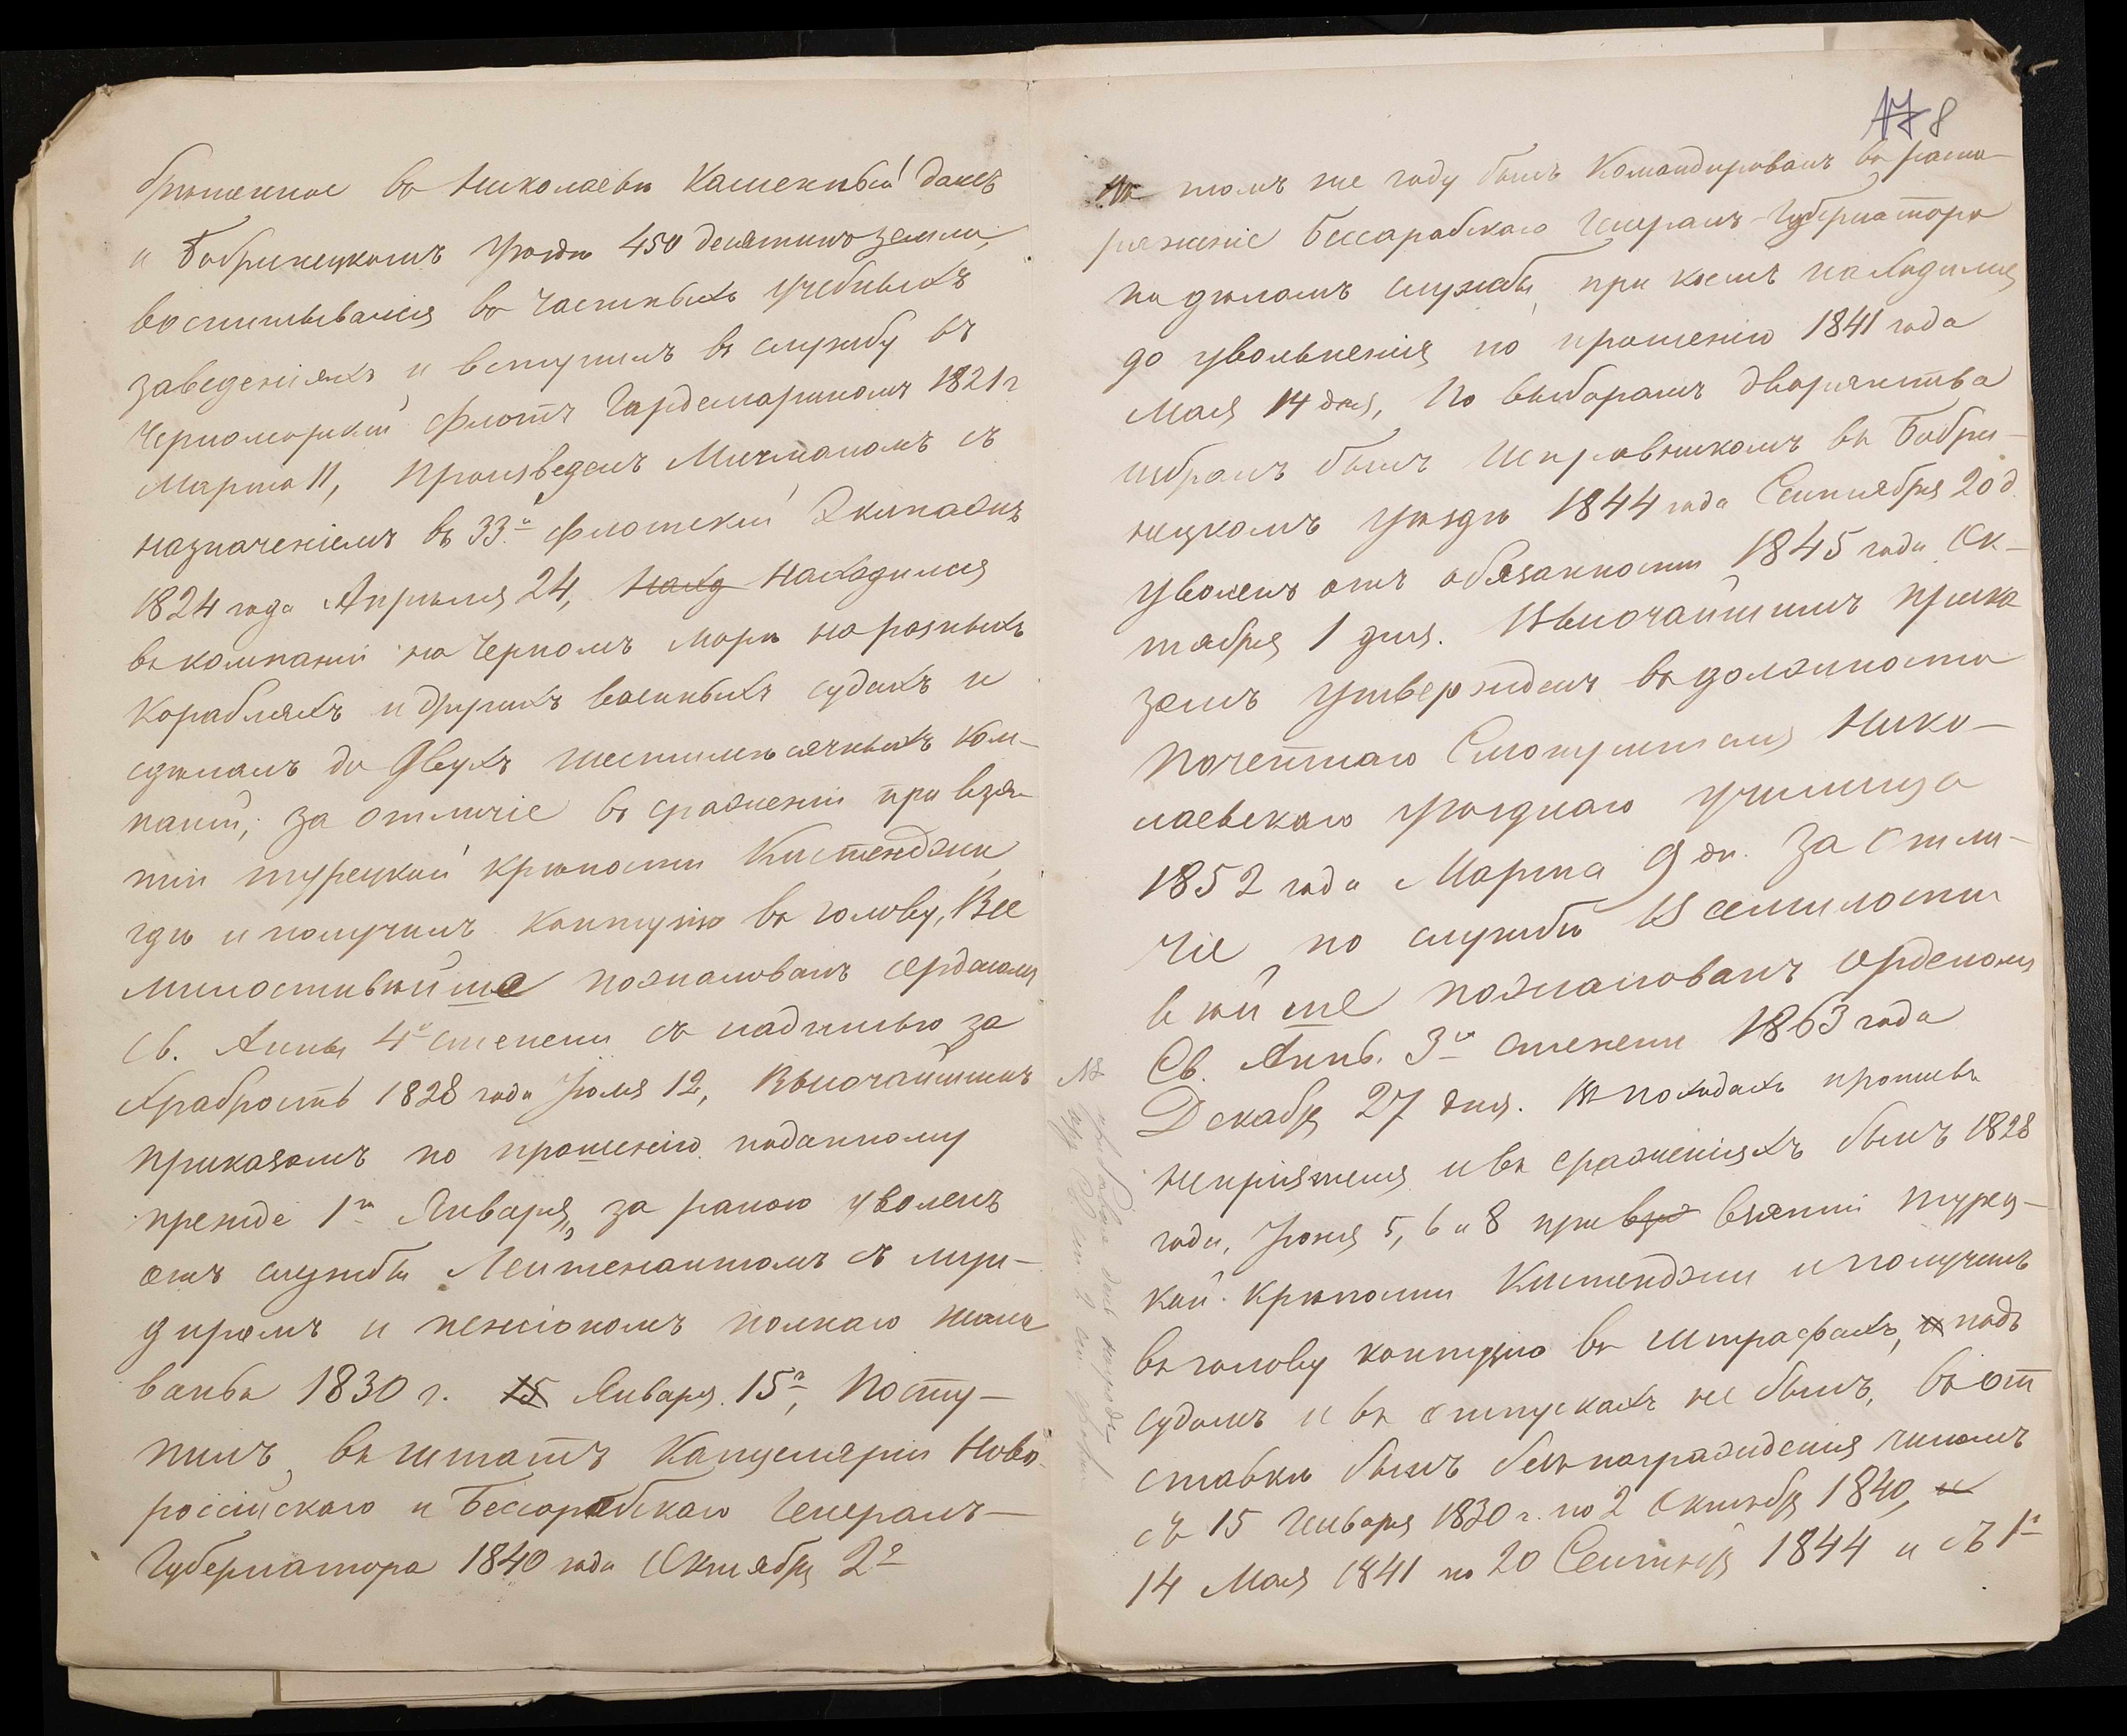 брѣтенное въ Николаевѣ Каменный домъ
и Бобринецкомъ Уѣздѣ 450 десятинъ земли,
воспитывался въ частныхъ учебныхъ
заведеніяхъ и вступилъ въ службу въ
Черноморскій флотъ Гардемариномъ 1821 г
Марта 11, Произведенъ Мичманомъ съ
назначеніемъ въ 33й флотскій Экипажъ
1824 года Апрѣля 24, Нахд Находился
въ компаніи на Черномъ морѣ на разныхъ
Корабляхъ и другихъ военныхъ судахъ и
сдѣлалъ до двухъ шестимѣсячныхъ Ком-
паній, за отличіе въ сраженіи при взя-
тіи турецкой крѣпости Кистенджи,
гдѣ и получилъ контузію въ голову, Все
милостивѣйше пожалованъ орденомъ
Св. Анны 4й степени съ надписью за
храбрость 1828 года Іюля 12, Высочайшимъ
приказомъ по прошенію поданному
прежде 1го Января, за раною уволенъ
отъ службы Лейтенантомъ съ мун-
диромъ и пенсіономъ полнаго жало
ванья 1830 г. 15 Января 15го, Посту-
пилъ въ штатъ Канцеляріи Ново-
россійскаго и Бессарабскаго Генералъ-
Губернатора 1840 года Октября 2го
17 8
Въ томъ же году былъ Командированъ въ распо-
ряженіе Бессарабскаго Генералъ-Губернатора
по дѣламъ службы, при коемъ находился
до увольненія по прошенію 1841 года
Мая 14 дня, По выборамъ дворянства
избранъ былъ Исправникомъ въ Бобри-
нецкомъ уѣздѣ 1844 года Сентября 20 д.
уволенъ отъ обязанности 1845 года Ок-
тября 1 дня. Высочайшимъ прика
зомъ утвержденъ въ должности
Почетнаго Смотрителя Нико-
лаевскаго уѣзднаго училища
1852 года Марта 9 дн. За отли-
чіе по службѣ Всемилости
вѣйше пожалованъ орденомъ
Св. Анны. 3й степени 1863 года
Декабр 27 дня. Въ походахъ противъ
непріятеля и въ сраженіяхъ былъ 1828
года, Іюня 5, 6 и 8 при взя взятіи турец-
кой крѣпости Кистенджи и получилъ
въ голову контузію въ штрафахъ, и подъ
судомъ и въ отпускахъ не былъ, въ от
ставкѣ былъ безъ награжденія чиномъ
съ 15 Января 1830 г. по 2 Октябр 1840, и
14 Мая 1841 по 20 Сентябр 1844 и съ 1го